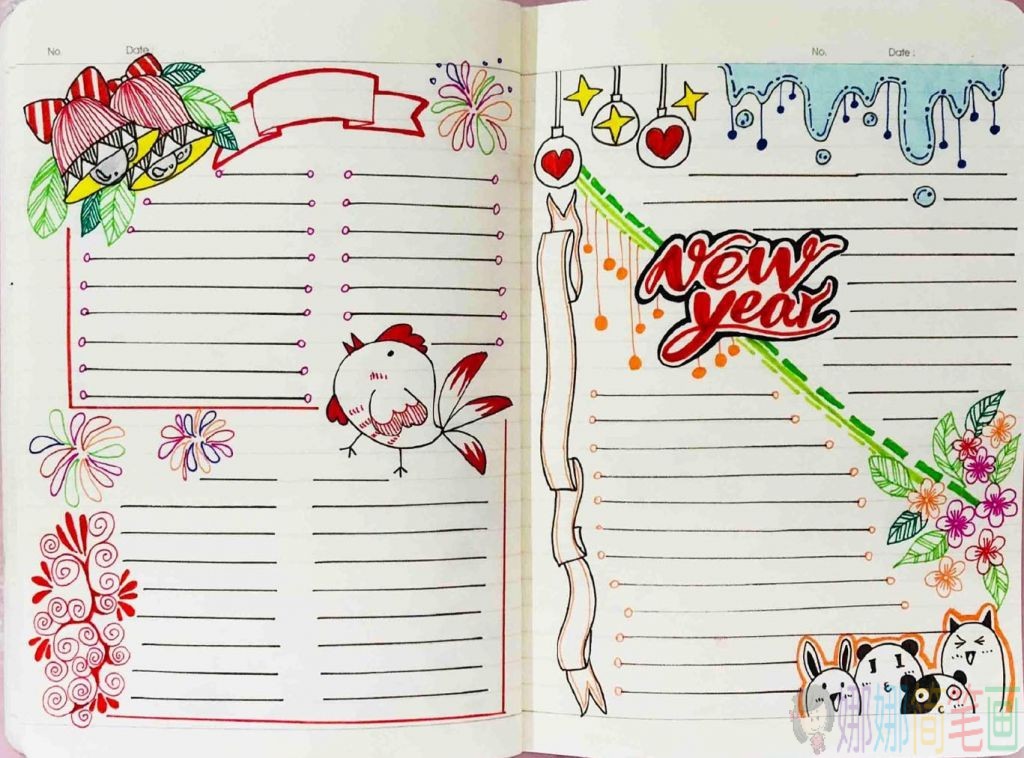 No.
Date
No.
Date :
New
year
娜娜简笔画